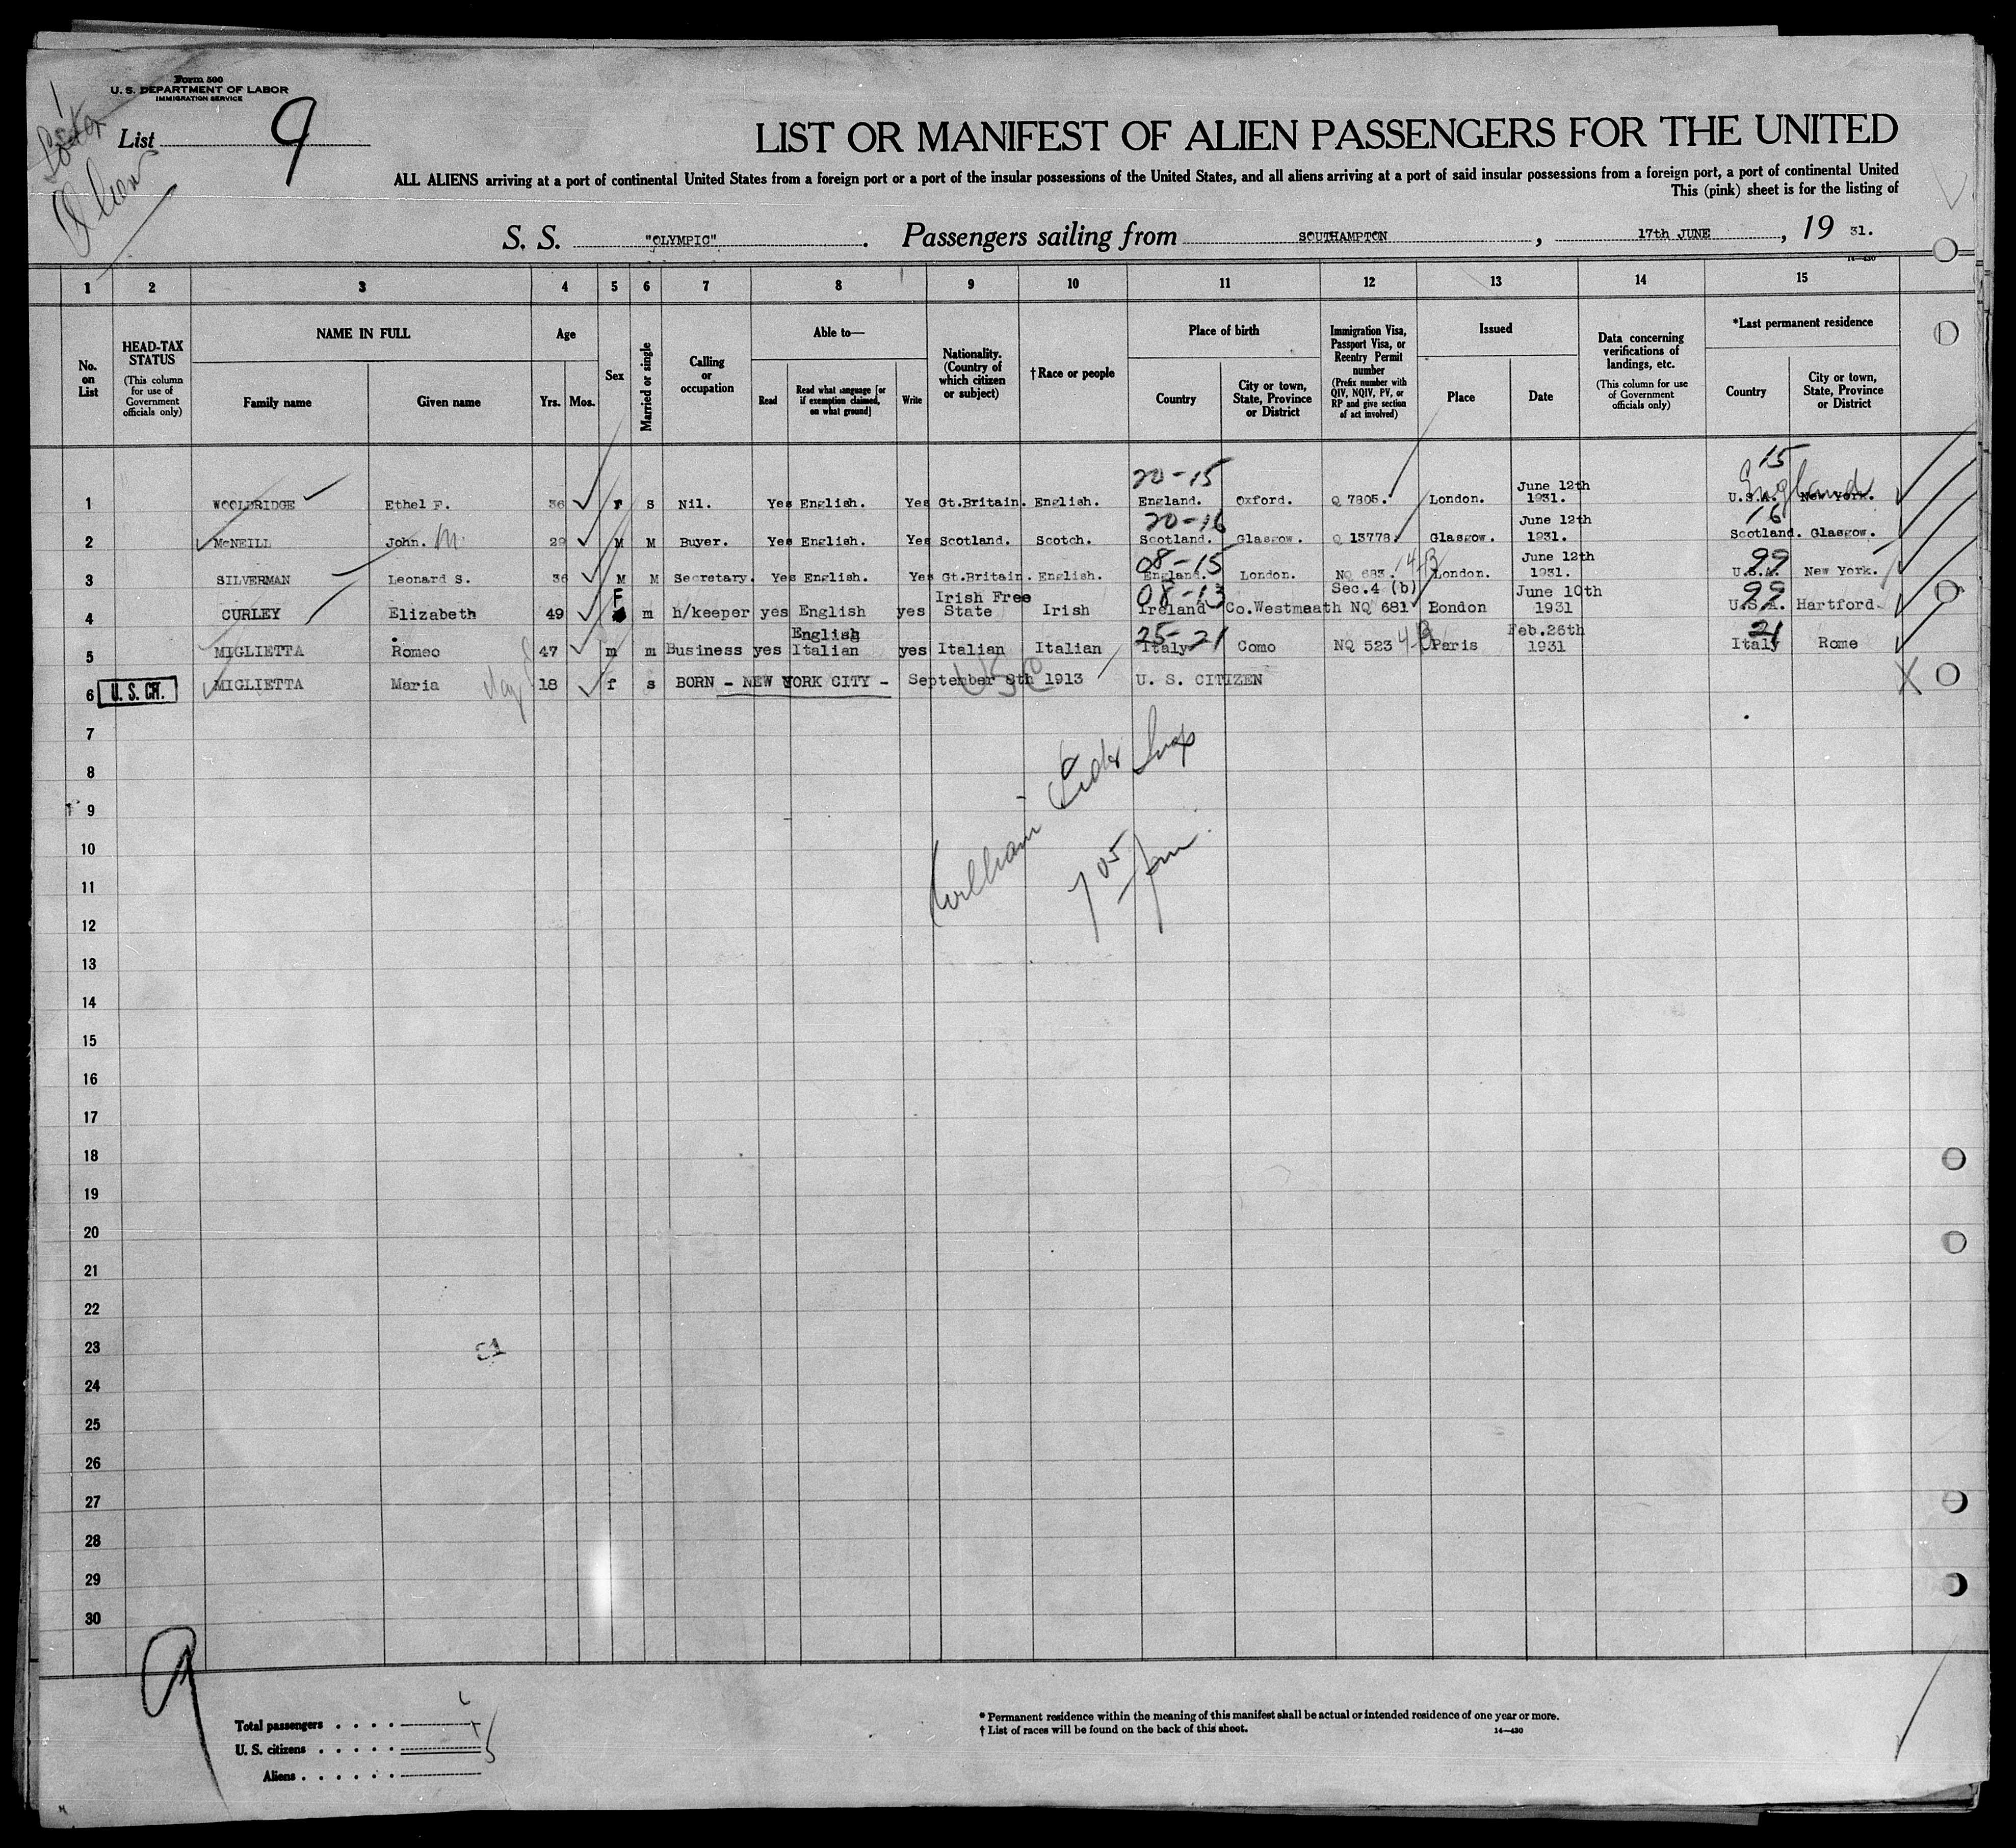 Form 500
U. S. DEPARTMENT OF LABOR
IMMIGRATION SERVICE
List 9
LIST OR MANIFEST OF ALIEN PASSENGERS FOR THE UNITED
ALL ALIENS arriving at a port of continental United States from a foreign port or a port of the insular possessions of the United States, and all aliens arriving at a port of said insular possessions from a foreign port, a port of continental United
This (pink) sheet is for the listing of
S. S. "OLYMPIC". Passengers sailing from SOUTHAMPTON, 17th JUNE, 19 31.
14—430
1 2 3 4 5 6 7 8 9 10 11 12 13 14 15
No. on List
HEAD-TAX STATUS (This column for use of Government officials only)
NAME IN FULL
Family name
Given name
Age
Yrs. Mos.
Sex
Married or single
Calling or occupation
Able to—
Read
Read what language [or if exemption claimed, on what ground]
Write
Nationality. (Country of which citizen or subject)
† Race or people
Place of birth
Country
City or town, State, Province or District
Immigration Visa, Passport Visa, or Reentry Permit number (Prefix number with QIV, NQIV, PV, or RP and give section of act involved)
Issued
Place
Date
Data concerning verifications of landings, etc. (This column for use of Government officials only)
*Last permanent residence
Country
City or town, State, Province or District
20-15 15 England
1 WOOLDRIDGE Ethel F. 36 F S Nil. Yes English. Yes Gt.Britain. English. England. Oxford. Q 7805. London. June 12th 1931. U.S.A. New York.
20-16 16
2 McNEILL John. M. 29 M M Buyer. Yes English. Yes Scotland. Scotch. Scotland. Glasgow. Q 13778. Glasgow. June 12th 1931. Scotland. Glasgow.
08-15 4B 99
3 SILVERMAN Leonard S. 36 M M Secretary. Yes English. Yes Gt.Britain. English. England. London. NQ 683. London. June 12th 1931. U.S.A. New York.
08-13 99
4 CURLEY Elizabeth 49 F m h/keeper yes English yes Irish Free State Irish Ireland Co.Westmeath Sec.4 (b) NQ 681 London June 10th 1931 U.S.A. Hartford.
25-21 4B 21
5 MIGLIETTA Romeo 47 m m Business yes English Italian yes Italian Italian Italy Como NQ 523 Paris Feb.26th 1931 Italy Rome
6 U. S. CIT. MIGLIETTA Maria 18 f s BORN - NEW YORK CITY - September 8th 1913 U. S. CITIZEN
USC
7
8
9
10
11
12
13
14
15
16
17
18
19
20
21
22
23
24
25
26
27
28
29
30
William
7 05 pm
9
Total passengers
U. S. citizens
Aliens
* Permanent residence within the meaning of this manifest shall be actual or intended residence of one year or more.
† List of races will be found on the back of this sheet.
14—430